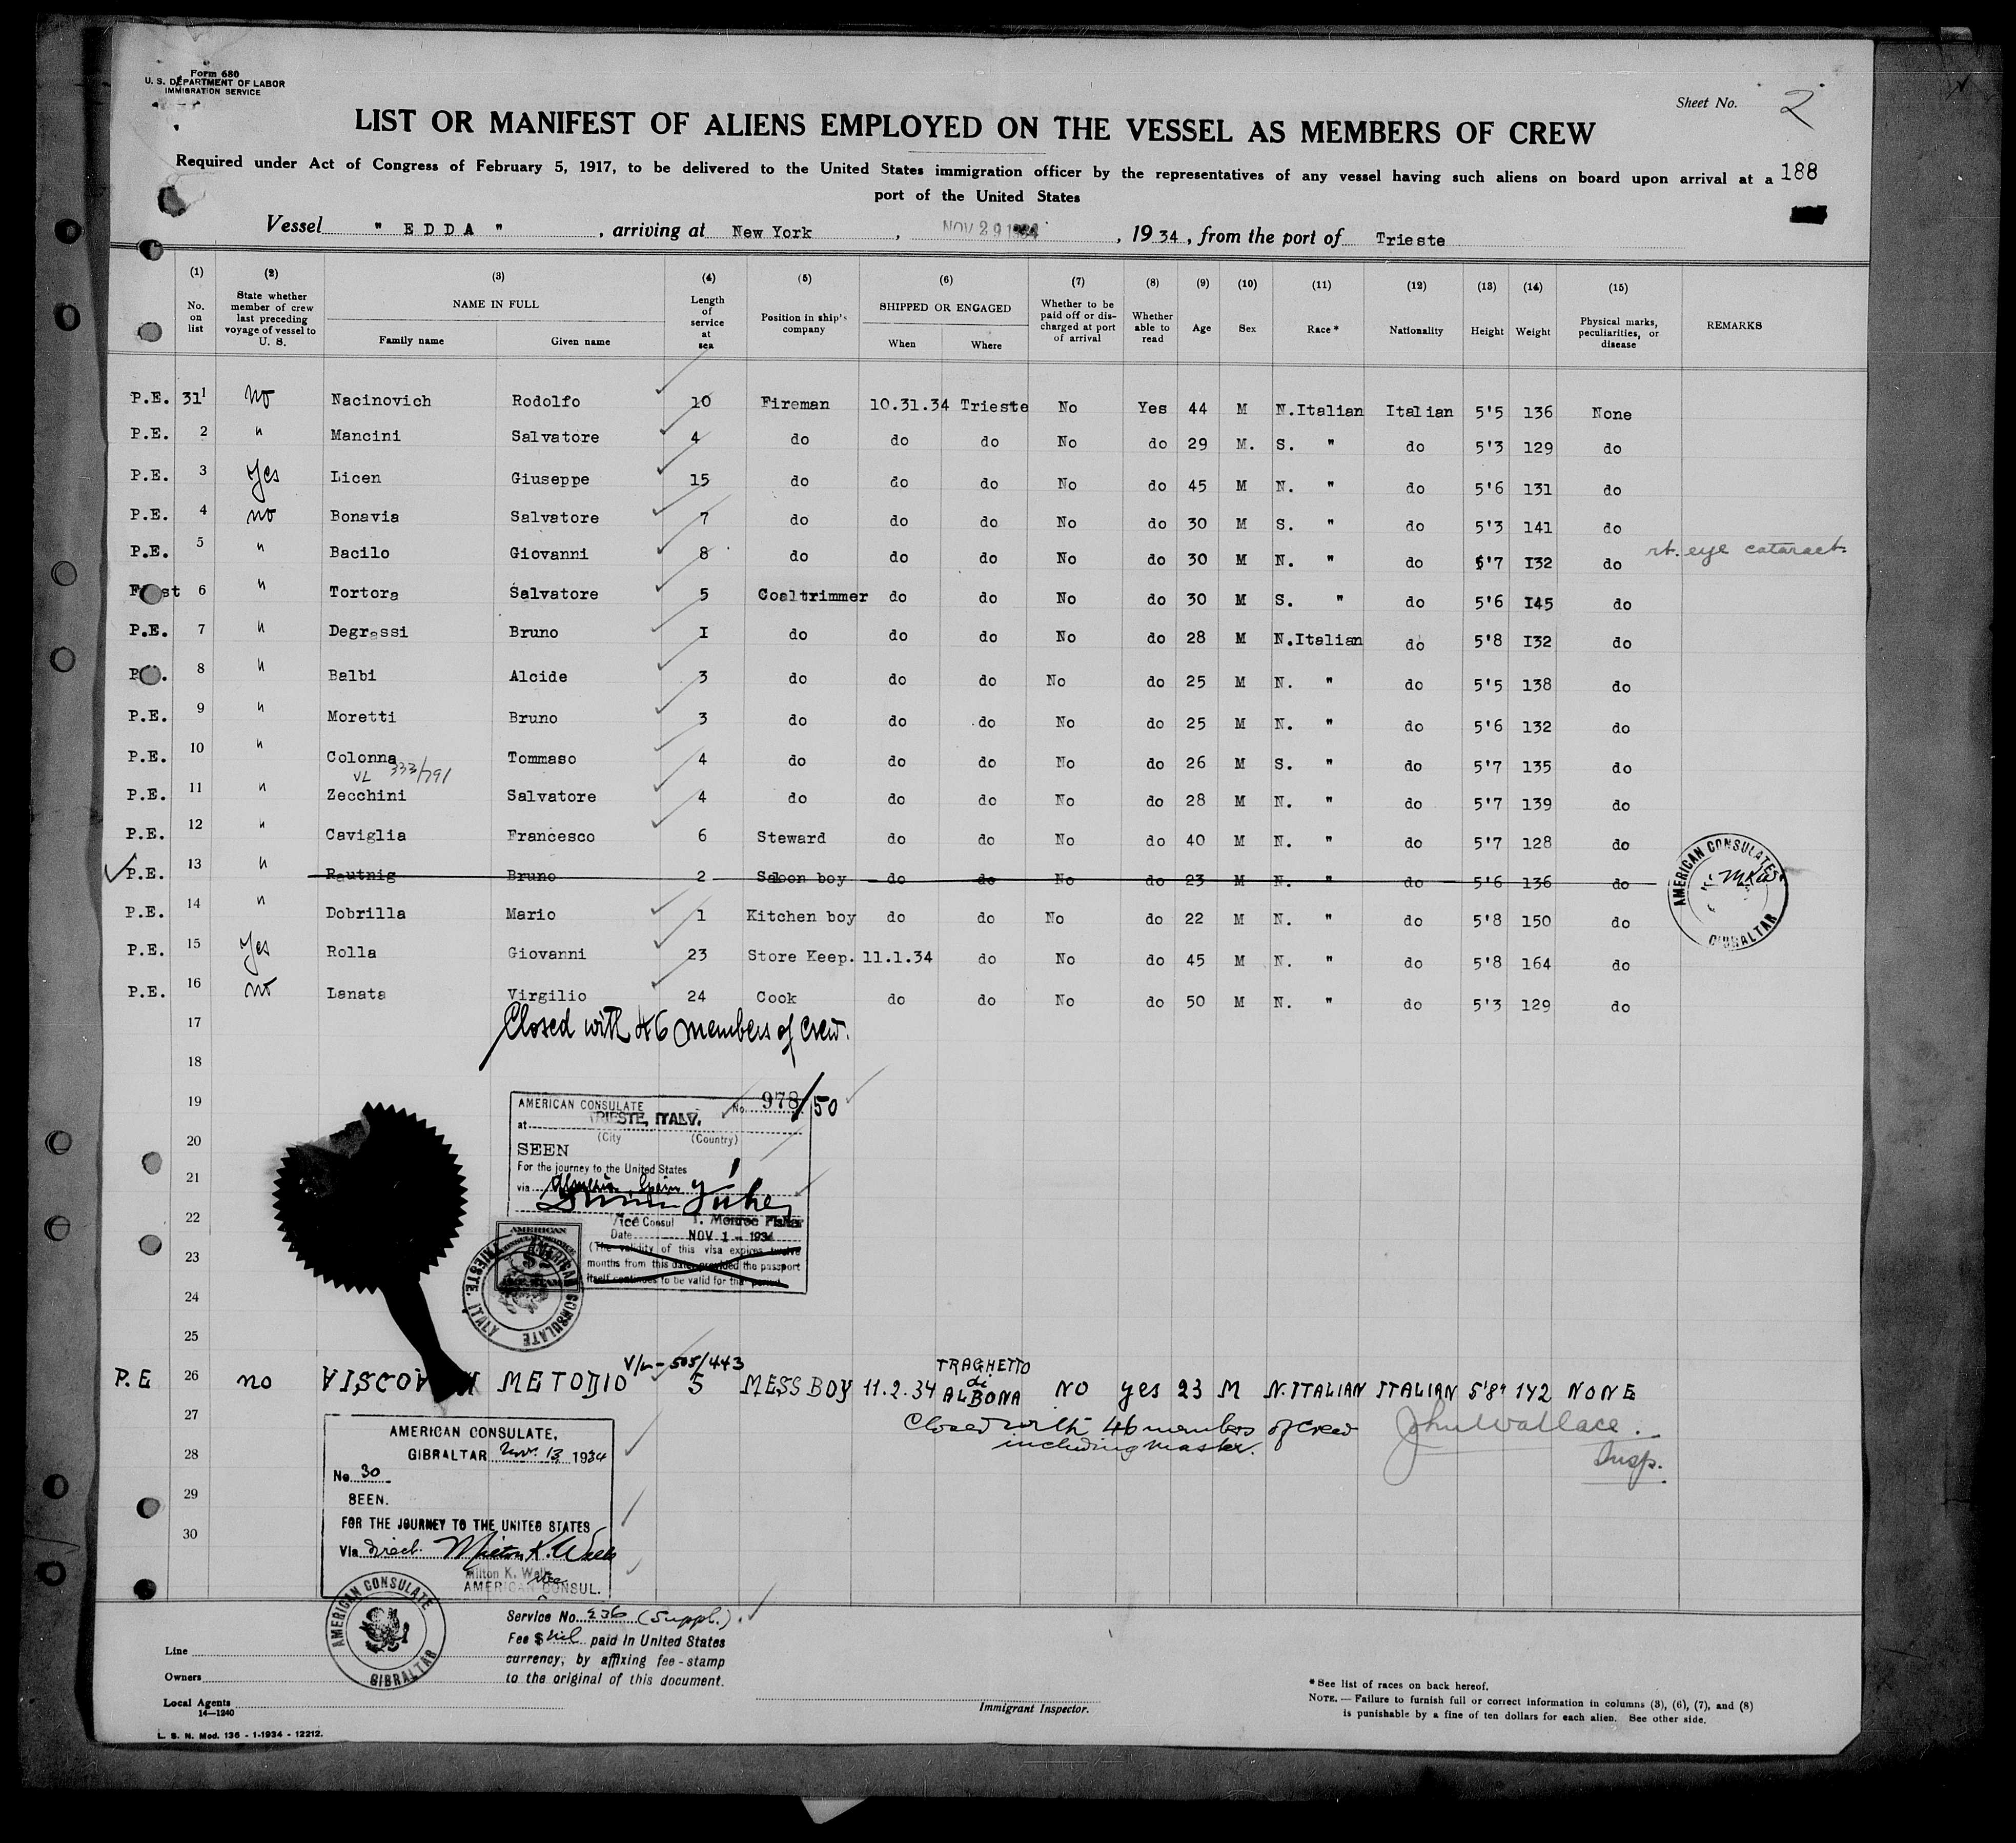 Form 680
U. S. DEPARTMENT OF LABOR
IMMIGRATION SERVICE
Sheet No. 2
LIST OR MANIFEST OF ALIENS EMPLOYED ON THE VESSEL AS MEMBERS OF CREW
Required under Act of Congress of February 5, 1917, to be delivered to the United States immigration officer by the representatives of any vessel having such aliens on board upon arrival at a
port of the United States
188
Vessel " EDDA " , arriving at New York , NOV 29 1934 , 1934 , from the port of Trieste
(1) (2) (3) (4) (5) (6) (7) (8) (9) (10) (11) (12) (13) (14) (15)
No. on list State whether member of crew last preceding voyage of vessel to U. S. NAME IN FULL Family name Given name Length of service at sea Position in ship's company SHIPPED OR ENGAGED When Where Whether to be paid off or discharged at port of arrival Whether able to read Age Sex Race * Nationality Height Weight Physical marks, peculiarities, or disease REMARKS
P.E. 31 1 No Nacinovich Rodolfo 10 Fireman 10.31.34 Trieste No Yes 44 M N.Italian Italian 5'5 136 None
P.E. 2 " Mancini Salvatore 4 do do do No do 29 M. S. " do 5'3 129 do
P.E. 3 Yes Licen Giuseppe 15 do do do No do 45 M N. " do 5'6 131 do
P.E. 4 no Bonavia Salvatore 7 do do do No do 30 M S. " do 5'3 141 do
P.E. 5 " Bacilo Giovanni 8 do do do No do 30 M N. " do 5'7 I32 do rt. eye cataract
6 " Tortora Salvatore 5 Coaltrimmer do do No do 30 M S. " do 5'6 I45 do
P.E. 7 " Degrassi Bruno I do do do No do 28 M N.Italian do 5'8 I32 do
8 " Balbi Alcide 3 do do do No do 25 M N. " do 5'5 138 do
P.E. 9 " Moretti Bruno 3 do do do No do 25 M N. " do 5'6 132 do
P.E. 10 " Colonna Tommaso 4 do do do No do 26 M S. " do 5'7 135 do
VL 333/791
P.E. 11 " Zecchini Salvatore 4 do do do No do 28 M N. " do 5'7 139 do
P.E. 12 " Caviglia Francesco 6 Steward do do No do 40 M N. " do 5'7 128 do
P.E. 13 " Rautnig Bruno 2 Saloon boy do do No do 23 M N. " do 5'6 136 do
AMERICAN CONSULATE GIBRALTAR MKW
P.E. 14 " Dobrilla Mario 1 Kitchen boy do do No do 22 M N. " do 5'8 150 do
P.E. 15 Yes Rolla Giovanni 23 Store Keep. 11.1.34 do No do 45 M N. " do 5'8 164 do
P.E. 16 no Lanata Virgilio 24 Cook do do No do 50 M N. " do 5'3 129 do
17 Closed with 46 members of crew.
18
19
AMERICAN CONSULATE No. 978/50
at TRIESTE, ITALY.
20
(City (Country)
SEEN
For the journey to the United States
21
via Almeria, Spain
22
Vice Consul T. Monroe Fisher
Date NOV 1 - 1934
23
(The validity of this visa expires twelve
months from this date provided the passport
itself continues to be valid for that period.
AMERICAN CONSULATE TRIESTE, ITALY
24
25
V/L - 505/443
P.E 26 no METODIO 5 MESS BOY 11.2.34 TRAGHETTO di ALBONA NO yes 23 M N.ITALIAN ITALIAN 5'8" 142 NONE
27
Closed with 46 members of crew
including master.
John Wallace.
Insp.
AMERICAN CONSULATE,
28
GIBRALTAR Nov. 13, 1934
No 30
29
SEEN.
FOR THE JOURNEY TO THE UNITED STATES
30
Via direct. Milton K. Wells
Milton K. Wells
Vice
AMERICAN CONSUL.
AMERICAN CONSULATE GIBRALTAR
Service No. 236 (Suppl.).
Fee $ nil paid in United States
currency, by affixing fee-stamp
to the original of this document.
Line
Owners
Local Agents
14—1240
Immigrant Inspector.
* See list of races on back hereof.
NOTE.—Failure to furnish full or correct information in columns (3), (6), (7), and (8)
is punishable by a fine of ten dollars for each alien. See other side.
L. S. N. Mod. 136 - 1-1934 - 12212.